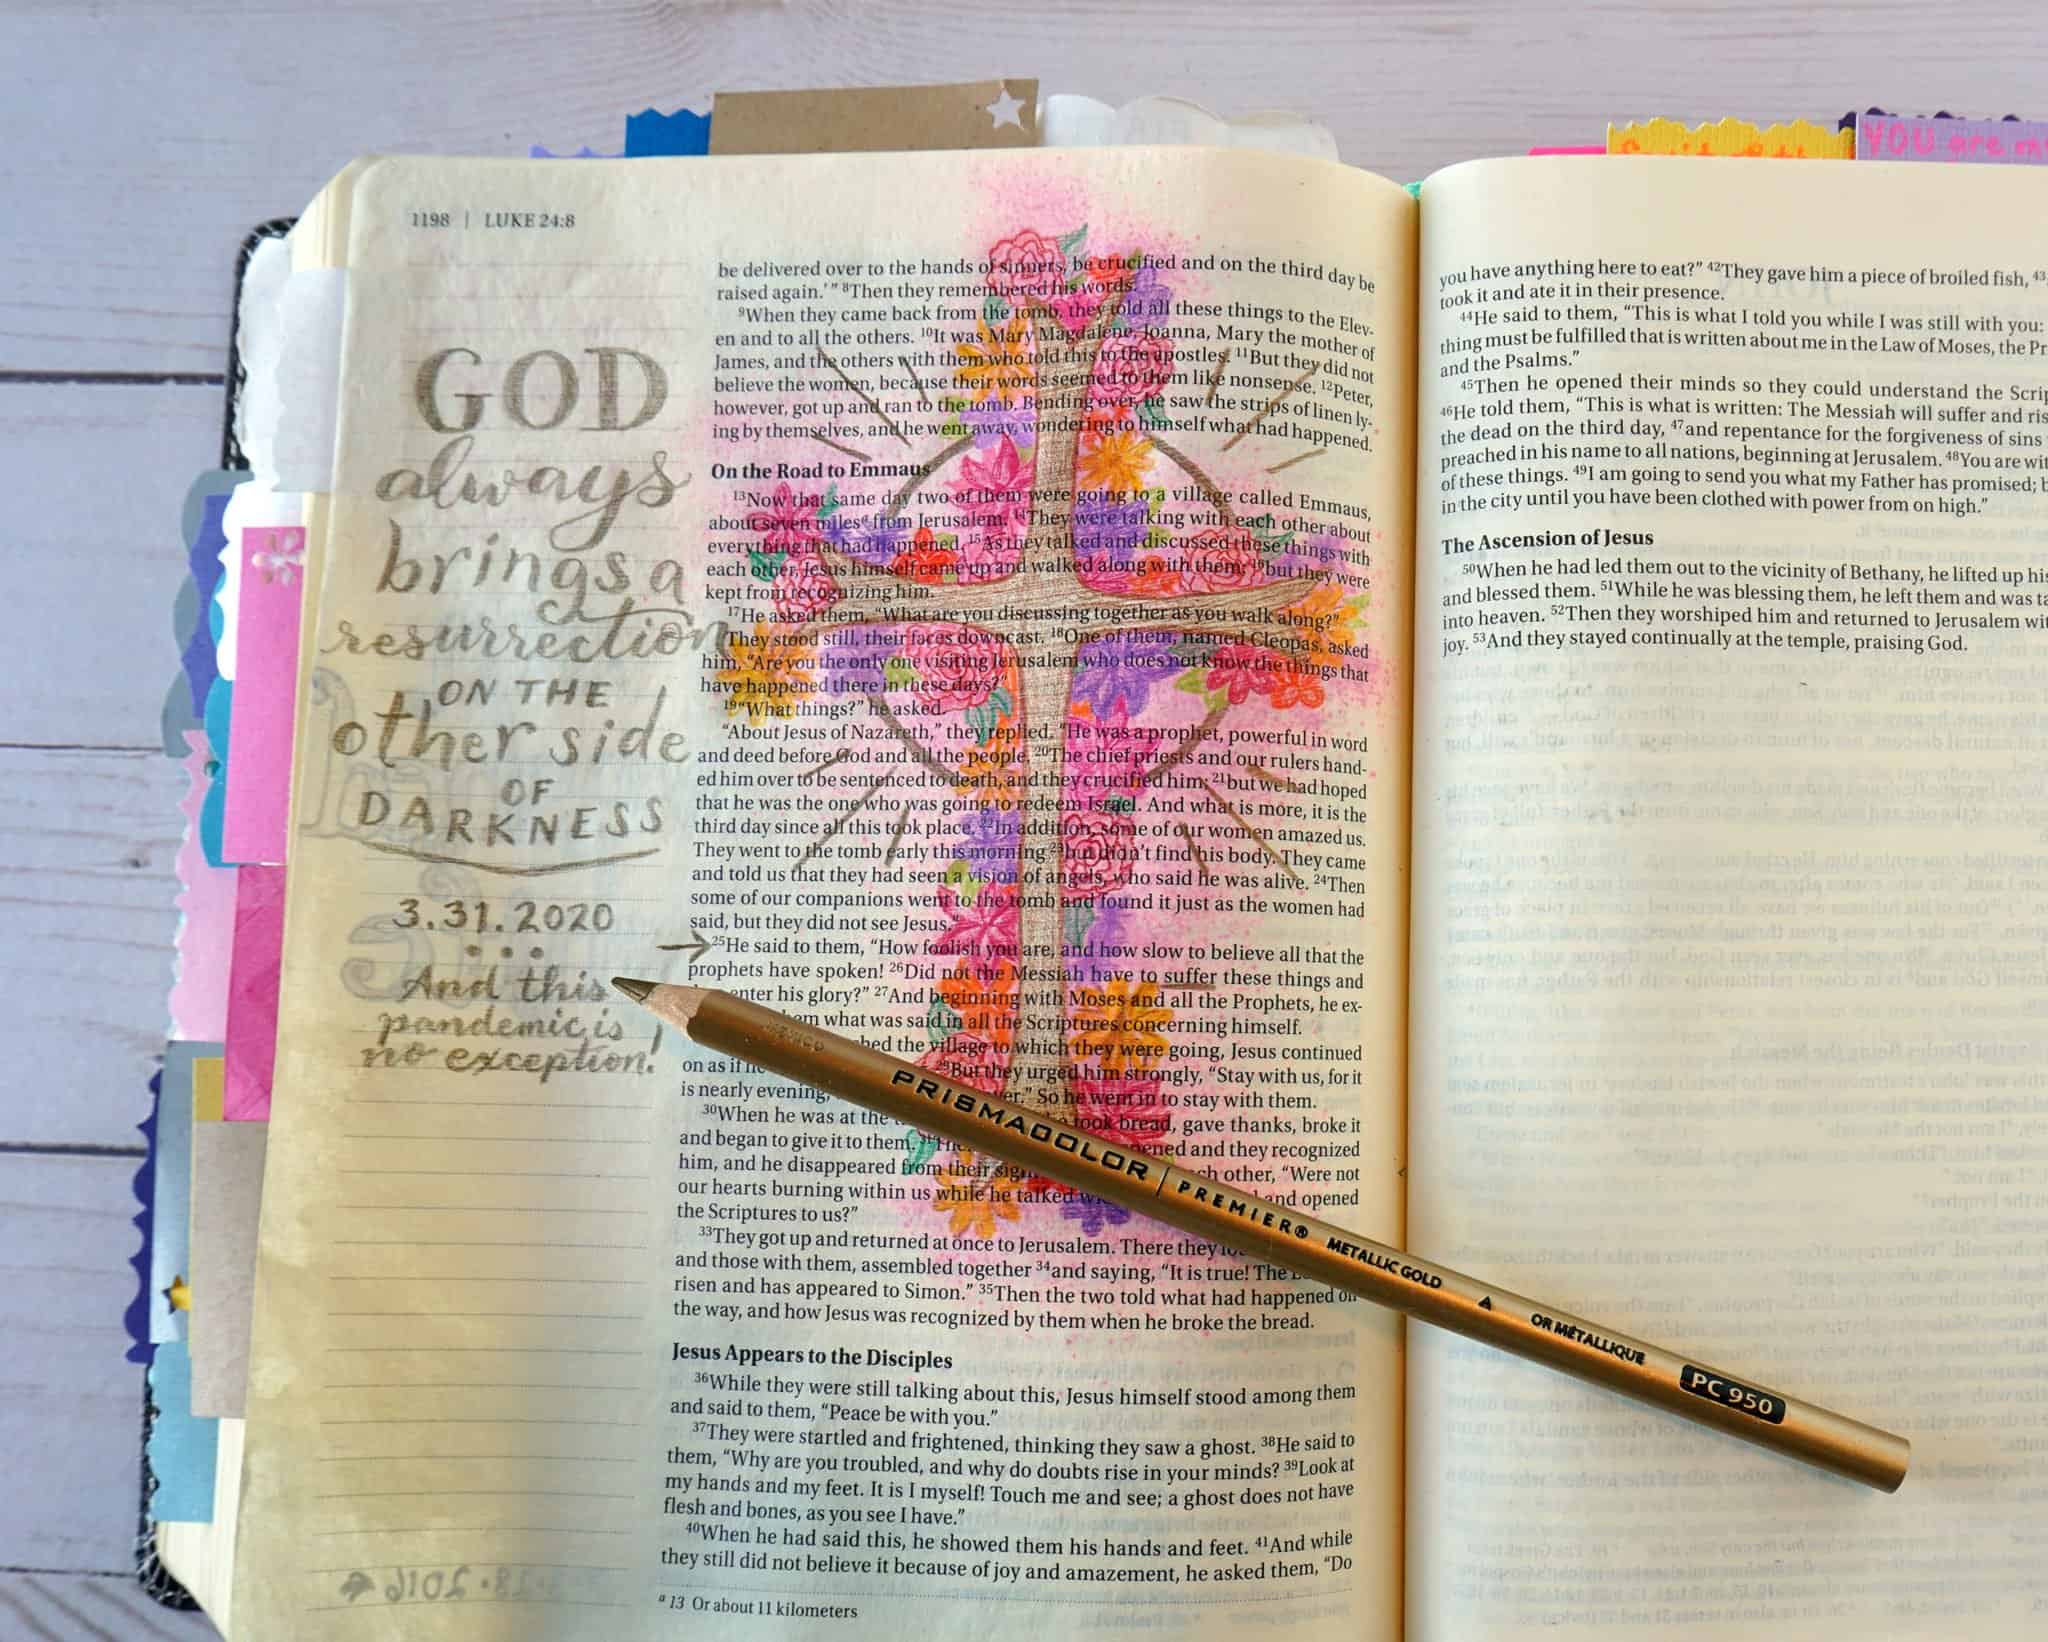 YOU are my
1198 | LUKE 24:8
GOD
always
brings a
resurrection
ON THE
other side
OF
DARKNESS
3.31.2020
And this
pandemic is
no exception!
be delivered over to the hands of sinners, be crucified and on the third day be
raised again.’” 8Then they remembered his words.
9When they came back from the tomb, they told all these things to the Elev-
en and to all the others. 10It was Mary Magdalene, Joanna, Mary the mother of
James, and the others with them who told this to the apostles. 11But they did not
believe the women, because their words seemed to them like nonsense. 12Peter,
however, got up and ran to the tomb. Bending over, he saw the strips of linen ly-
ing by themselves, and he went away, wondering to himself what had happened.
On the Road to Emmaus
13Now that same day two of them were going to a village called Emmaus,
about seven milesa from Jerusalem. 14They were talking with each other about
everything that had happened. 15As they talked and discussed these things with
each other, Jesus himself came up and walked along with them; 16but they were
kept from recognizing him.
17He asked them, “What are you discussing together as you walk along?”
They stood still, their faces downcast. 18One of them, named Cleopas, asked
him, “Are you the only one visiting Jerusalem who does not know the things that
have happened there in these days?”
19“What things?” he asked.
“About Jesus of Nazareth,” they replied. “He was a prophet, powerful in word
and deed before God and all the people. 20The chief priests and our rulers hand-
ed him over to be sentenced to death, and they crucified him; 21but we had hoped
that he was the one who was going to redeem Israel. And what is more, it is the
third day since all this took place. 22In addition, some of our women amazed us.
They went to the tomb early this morning 23but didn’t find his body. They came
and told us that they had seen a vision of angels, who said he was alive. 24Then
some of our companions went to the tomb and found it just as the women had
said, but they did not see Jesus.”
25He said to them, “How foolish you are, and how slow to believe all that the
prophets have spoken! 26Did not the Messiah have to suffer these things and
enter his glory?” 27And beginning with Moses and all the Prophets, he ex-
what was said in all the Scriptures concerning himself.
the village to which they were going, Jesus continued
on as if he 29But they urged him strongly, “Stay with us, for it
is nearly evening; So he went in to stay with them.
30When he was at the took bread, gave thanks, broke it
and began to give it to them. and they recognized
him, and he disappeared from their other, “Were not
our hearts burning within us while he talked and opened
the Scriptures to us?”
33They got up and returned at once to Jerusalem. There they
and those with them, assembled together 34and saying, “It is true! The
risen and has appeared to Simon.” 35Then the two told what had happened on
the way, and how Jesus was recognized by them when he broke the bread.
Jesus Appears to the Disciples
36While they were still talking about this, Jesus himself stood among them
and said to them, “Peace be with you.”
37They were startled and frightened, thinking they saw a ghost. 38He said to
them, “Why are you troubled, and why do doubts rise in your minds? 39Look at
my hands and my feet. It is I myself! Touch me and see; a ghost does not have
flesh and bones, as you see I have.”
40When he had said this, he showed them his hands and feet. 41And while
they still did not believe it because of joy and amazement, he asked them, “Do
a 13 Or about 11 kilometers
PRISMACOLOR | PREMIER® METALLIC GOLD OR MÉTALLIQUE PC 950
you have anything here to eat?” 42They gave him a piece of broiled fish, 43
took it and ate it in their presence.
44He said to them, “This is what I told you while I was still with you:
thing must be fulfilled that is written about me in the Law of Moses, the Pr
and the Psalms.”
45Then he opened their minds so they could understand the Scrip
46He told them, “This is what is written: The Messiah will suffer and ris
the dead on the third day, 47and repentance for the forgiveness of sins
preached in his name to all nations, beginning at Jerusalem. 48You are wit
of these things. 49I am going to send you what my Father has promised; b
in the city until you have been clothed with power from on high.”
The Ascension of Jesus
50When he had led them out to the vicinity of Bethany, he lifted up his
and blessed them. 51While he was blessing them, he left them and was ta
into heaven. 52Then they worshiped him and returned to Jerusalem wit
joy. 53And they stayed continually at the temple, praising God.